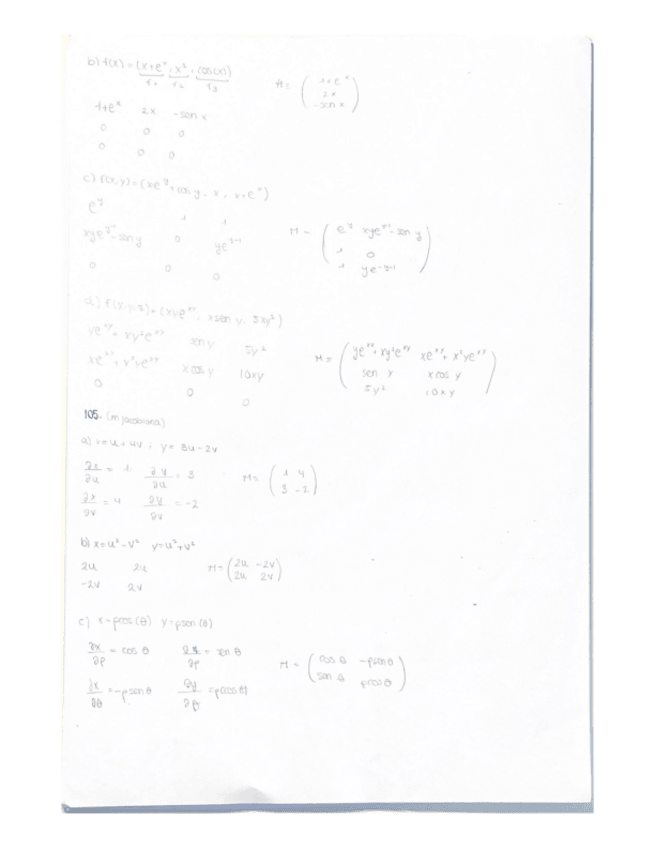 b) f(x) = (x+eˣ, x², cos(x))
f₁ f₂ f₃
1+eˣ 2x -sen x
0 0 0
0 0 0
M = ( 1+eˣ
2x
-sen x )
c) f(x,y) = (xe^y + cos y, x, x+e^x)
e^y 1 1
xye^y-1 - sen y 0 ye^y-1
0 0 0
M = ( e^y xye^y-1 - sen y
1 0
1 ye^y-1 )
d) f(x,y,z) = (xye^xy, x sen y, 5xy²)
ye^xy + xy²e^xy sen y 5y²
xe^xy + x²ye^xy x cos y 10xy
0 0 0
M = ( ye^xy + xy²e^xy xe^xy + x²ye^xy
sen y x cos y
5y² 10xy )
105. (m jacobiana)
a) x = u + 4v, y = 3u - 2v
∂x/∂u = 1 ∂y/∂u = 3
∂x/∂v = 4 ∂y/∂v = -2
M = ( 1 4
3 -2 )
b) x = u² - v² y = u² + v²
2u 2u
-2v 2v
M = ( 2u -2v
2u 2v )
c) x = ρcos(θ) y = ρsen(θ)
∂x/∂ρ = cos θ = sen θ
∂x/∂θ = -ρsen θ = ρcos θ
M = ( cos θ -ρsen θ
sen θ ρcos θ )